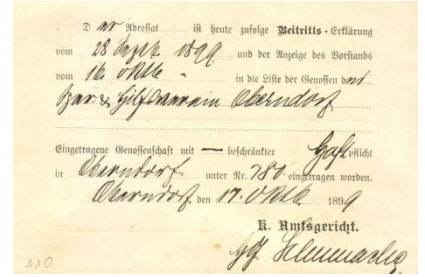 D er Adressat ist heute zufolge Beitritts-Erklärung
vom 28 Septb. 1899. und der Anzeige des Vorstands
vom 16. Oktb. " in die Liste der Genossen
Spar- & Hilfsverein Oberndorf
Eingetragene Genossenschaft mit — beschränkter Haftpflicht
in Oberndorf unter Nr. 780. eingetragen worden.
Oberndorf, den 17. Oktb. 1899
K. Amtsgericht.